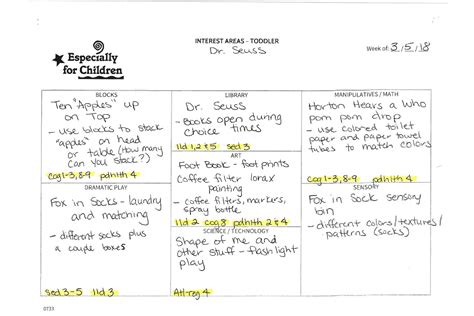 Especially
for Children
INTEREST AREAS – TODDLER
Dr. Seuss
Week of: 3/5/18
BLOCKS
Ten "Apples" up
on Top
- use blocks to stack
"apples" on head
or table (how many
can you stack?)
cog 1-3, 8-9 pdhlth 4
LIBRARY
Dr. Seuss
- Books open during
choice times
lld 1, 2 & 5 sed 3
MANIPULATIVES / MATH
Horton Hears a Who
pom pom drop
- use colored toilet
paper and paper towel
tubes to match colors
cog 1-3, 8-9 pdhlth 4
ART
Foot Book - foot prints
Coffee filter lorax
painting
- coffee filters, markers,
spray bottle
lld 2 cog 3 pdhlth 2 & 4
DRAMATIC PLAY
Fox in Socks - laundry
and matching
- different socks plus
a couple boxes
sed 3-5 lld 3
SCIENCE / TECHNOLOGY
Shape of me and
other stuff - flashlight
play
Atl-reg 4
SENSORY
Fox in Sock sensory
bin
- different colors/textures/
patterns (socks)
0733